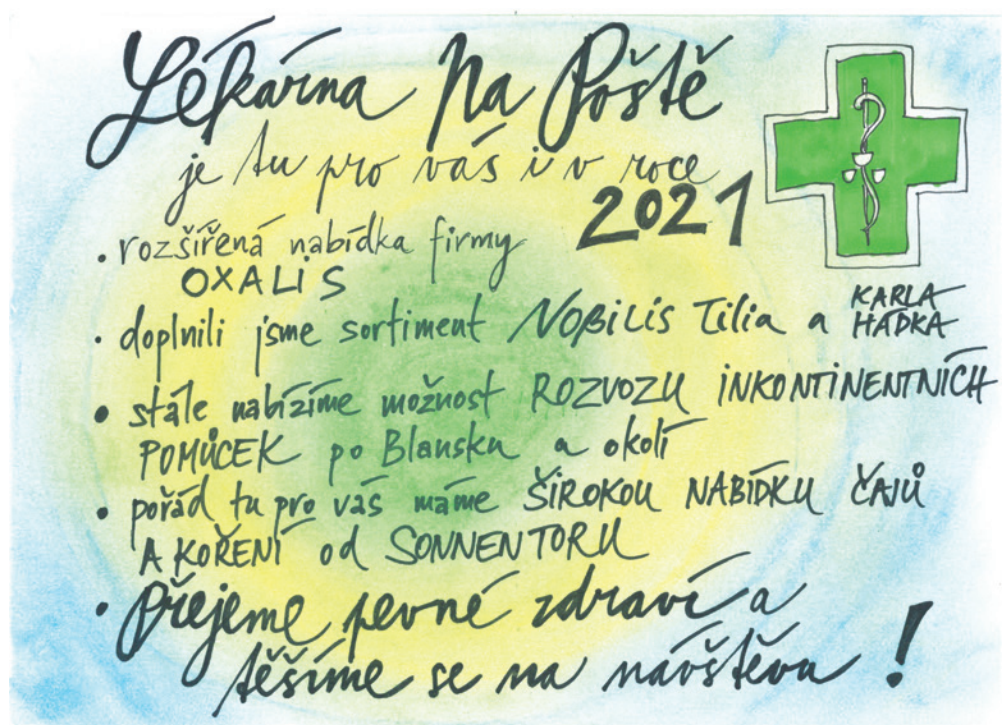 Lékárna Na Poště
je tu pro vás i v roce
2021
• rozšířená nabídka firmy
OXALIS
• doplnili jsme sortiment NOBILIS Tilia a KARLA
HÁDKA
• stále nabízíme možnost ROZVOZU INKONTINENTNÍCH
POMŮCEK po Blansku a okolí
• pořád tu pro vás máme ŠIROKOU NABÍDKU ČAJŮ
A KOŘENÍ od SONNENTORU
• Přejeme pevné zdraví a
těšíme se na návštěvu!